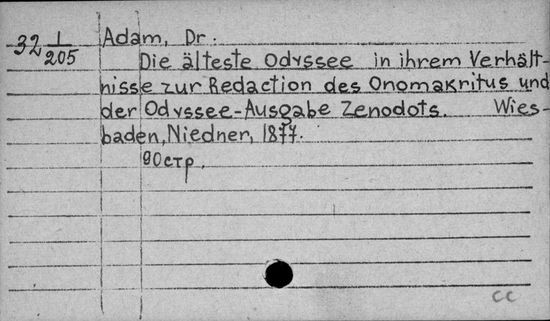 32 1/205 Adam, Dr.
Die älteste Odyssee in ihrem Verhält-
nisse zur Redaction des Onomakritus und
der Odyssee-Ausgabe Zenodots. Wies-
baden, Niedner, 1877.
90 стр.
cc